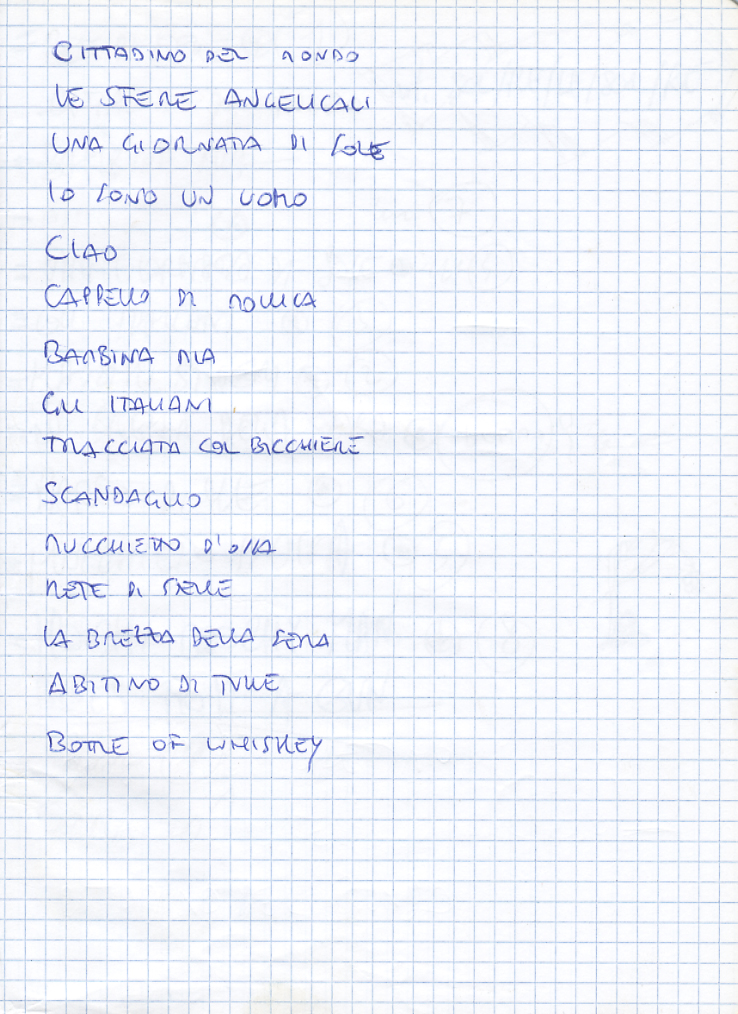 CITTADINO DEL MONDO
LE SFERE ANGELICALI
UNA GIORNATA DI SOLE
IO SONO UN UOMO
CIAO
CAPPELLO DI MOLLICA
BAMBINA MIA
GLI ITALIANI
TRACCIATA COL BICCHIERE
SCANDAGLIO
MUCCHIETTO D'OSSA
RETE DI STELLE
LA BREZZA DELLA SERA
ABITINO DI TULLE
BOTTLE OF WHISKEY